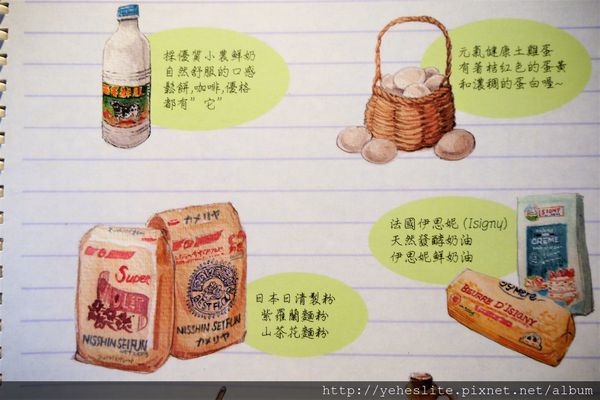 採優質小農鮮奶
自然舒服的口感
鬆餅,咖啡,優格
都有”它”
元氣健康土雞蛋
有著桔红色的蛋黃
和濃稠的蛋白喔~
法國伊思妮 (Isigny)
天然發酵奶油
伊思妮鮮奶油
ISIGNY
CREME
BEURRE D'ISIGNY
カメリヤ
Super
NISSHIN SEIFUN
NISSHIN SEIFUN
カメリヤ
日本日清製粉
紫羅蘭麵粉
山茶花麵粉
http://yeheslite.pixnet.net/album